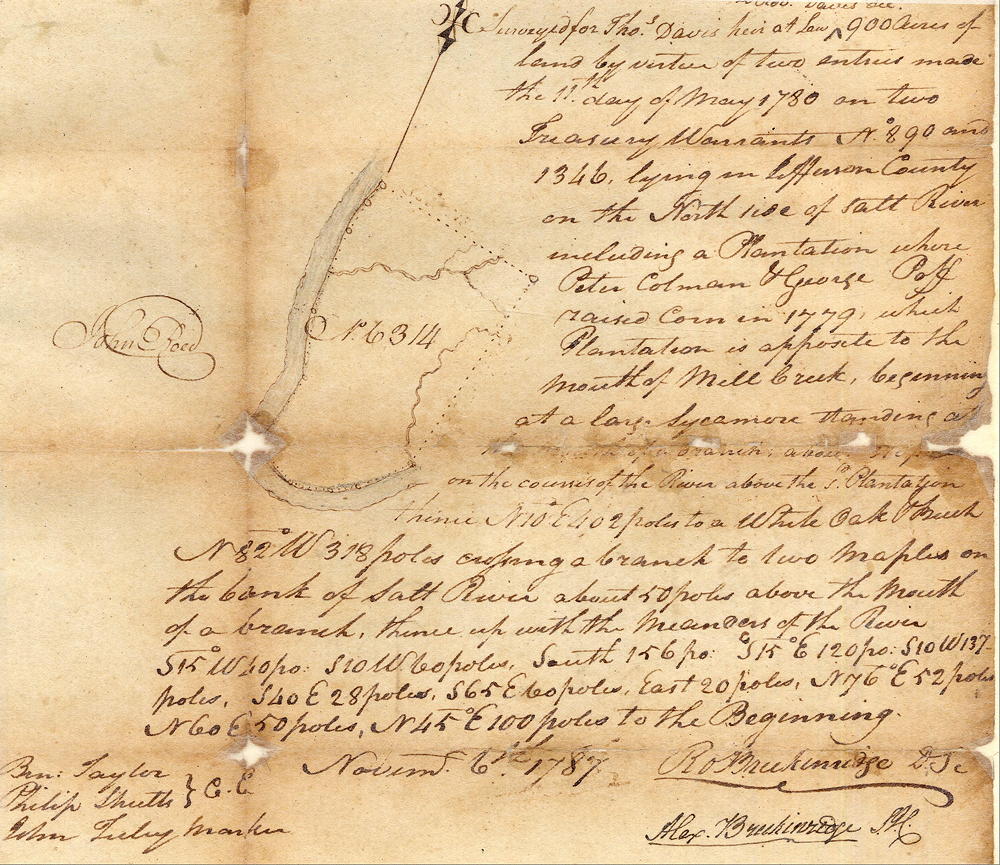 Davis dec.
Surveyed for Tho.s Davis heir at Law ^ 900 Acres of
land by virtue of two entries made
the 11th day of May 1780 on two
Treasury Warrants No. 890 and
1346, lying in Jefferson County
on the North side of Salt River
including a Plantation where
Peter Colman & George Poff
raised Corn in 1779, which
Plantation is opposite to the
Mouth of Mill Creek, beginning
No. 6314
John Reed
at a large Sycamore standing at
of a branch, about
on the courses of the River above the sd. Plantation
thence N10°E 402 poles to a White Oak & Beech
N82°W 318 poles crossing a branch to two Maples on
the bank of Salt River about 50 poles above the Mouth
of a branch, thence up with the Meanders of the River
S15°W 40 po: S10W 60 poles, South 156 po: S15°E 120 po: S10W 137-
poles, S40E 28 poles, S65E 60 poles, East 20 poles, N76°E 52 poles
N60E 50 poles, N45°E 100 poles to the Beginning.
Novem.r 6th 1787
Ro Breckinridge D.S.
Ben: Taylor
Philip Shutts } C.C
John Marker
Alex. Breckinridge